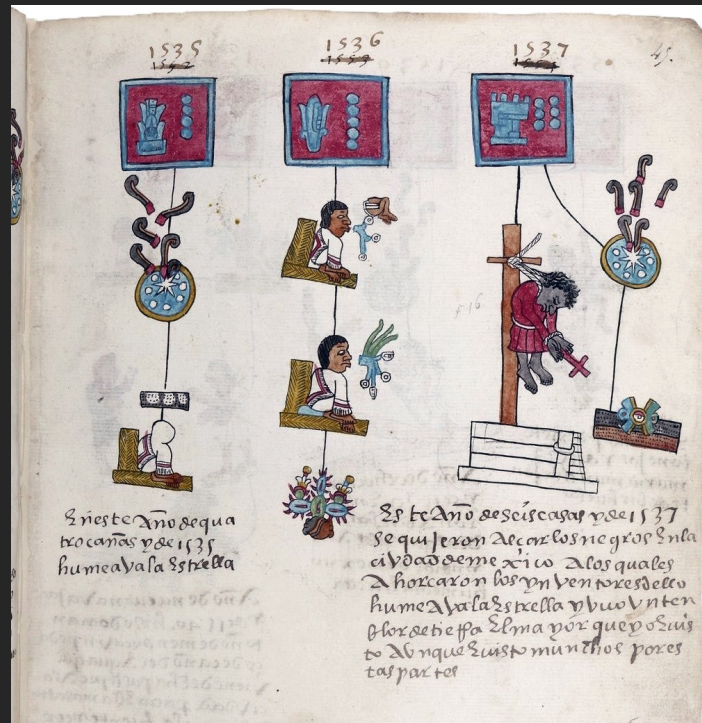 1535
1536
1537
45.
En este Año de qua
tro cañas y de 1535
humeava la Estrella
Es te Año de seis casas y de 1537
se quijeron Alcar los negros En la
ciudad de mexico A los quales
Ahorcaron los ynventores dello
humeAva la Estrella y uvo vn ten
blor de tierra El mayor que yo E vis
to Aunque E visto munchos por es
tas partes